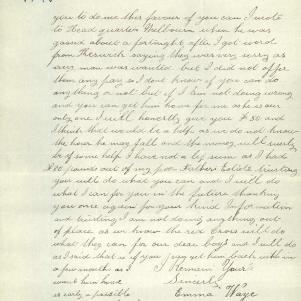 you to do me this favour if you can I wrote
to Head quarters Melbourn when he was
gassed about a fortnight after I got word
from saying they was very sorry as
any man was wanted but I did not offer
them any pay as I dont know if you can do
anything or not but if I am not doing wrong
and you can get him home for me as he is our
only one I will honestly give you £50 and
I think that would be a help as we do not know
the hour he may fall and the money will surely
be of some help I have not a big sum as I had
£100 pounds out of my poor Fathers Estate trusting
you will do what you can and I will do
what I can for you in the future thanking
you once again for your kind Information
and trusting I am not doing anything out
of place as we know the red Cross will do
what they can for our dear boys and I will do
as I said that is if you get him back within
a few months as I Remain Your
want him home Sincerely
as early a possible Emma Waye